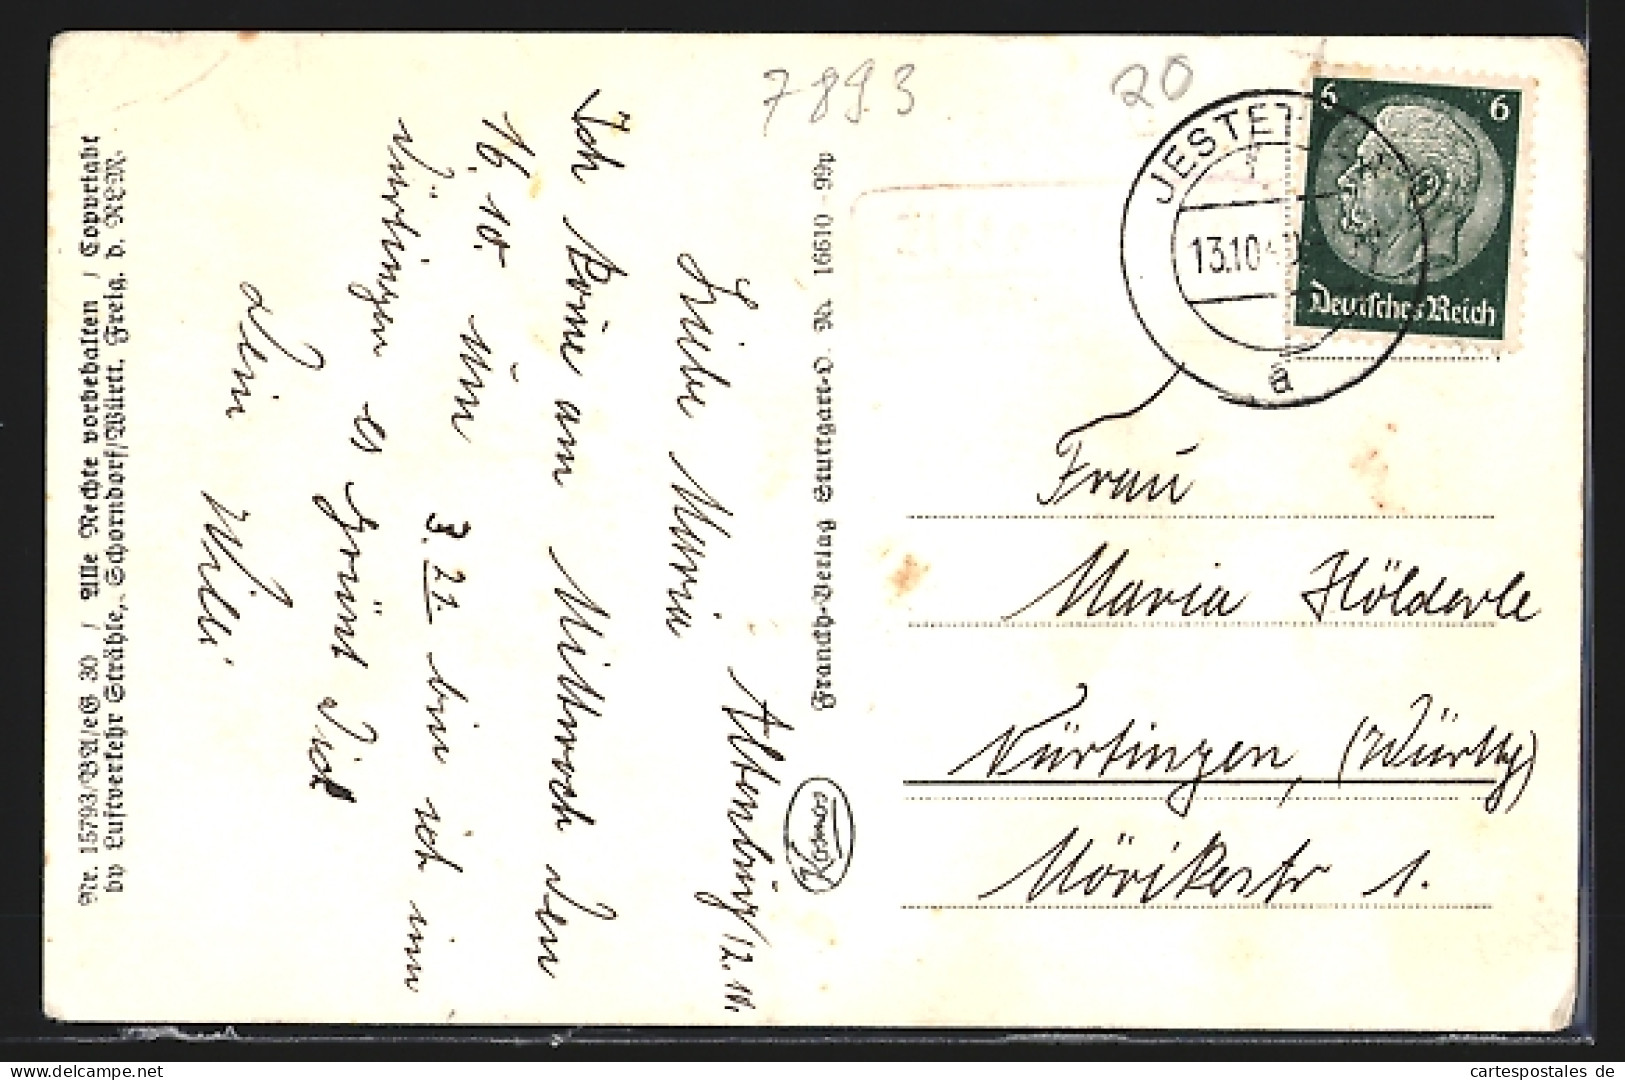 7893
20
JESTET
13.10.40
a
6 6
Deutsches Reich
Altenburg 12.10.
Liebe Maria
Ich komme am Mittwoch den
16.10. um 3.21. bin ich in
Nürtingen es grüßt Dich
Dein Willi.
Franckh-Verlag Stuttgart-O. Nr. 16610 - 99p
Kosmos
Nr. 15793/BA/eG 30 / Alle Rechte vorbehalten / Copyright
by Luftverkehr Strähle, Schorndorf/Württ. Freig. d. RLM.
Frau
Maria Hölderle
Nürtingen, (Württbg)
Mörikestr 1.
cartespostales de
www.delcampe.net